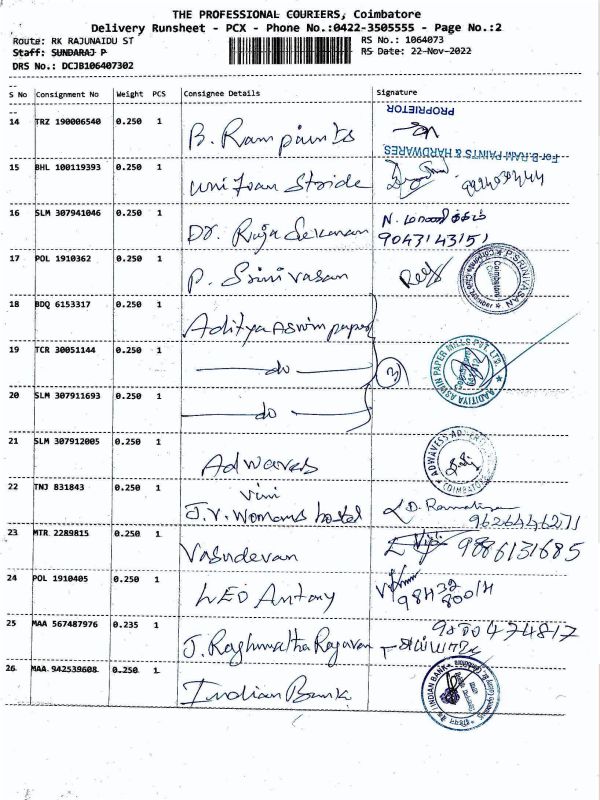 THE PROFESSIONAL COURIERS, Coimbatore
Delivery Runsheet - PCX - Phone No.:0422-3505555 - Page No.:2
Route: RK RAJUNAIDU ST RS No.: 1064073
Staff: SUNDARAJ P RS Date: 22-Nov-2022
DRS No.: DCJB106407302
S No Consignment No Weight PCS Consignee Details Signature
14 TRZ 190006540 0.250 1 B. Ram paints PROPRIETOR
For B.RAM PAINTS & HARDWARES
15 BHL 100119393 0.250 1 Uniforan Stride
16 SLM 307941046 0.250 1 Dr. Raja Sekaran N. மாணிக்கம்
9043143151
17 POL 1910362 0.250 1 P. Srinivasan P.SRINIVASAN Coimbatore
18 BDQ 6153317 0.250 1 Aditya Aswin paper
19 TCR 30051144 0.250 1 do 3 AADITIYA ASWIN PAPER MILLS PVT. LTD.
20 SLM 307911693 0.250 1 do
21 SLM 307912005 0.250 1 Adwaves ADWAVESS COIMBATORE
22 TNJ 831843 0.250 1 Vini
J.V. Womans hostel
23 MTR 2289815 0.250 1 Vasudevan 9886131685
24 POL 1910405 0.250 1 LEO Antony 98432
80014
25 MAA 567487976 0.235 1 J. Raghunatha Ragavan 9800474817
26 MAA 942539608 0.250 1 Indian Bank INDIAN BANK